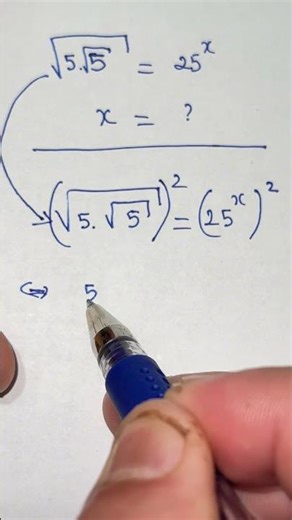 √(5.√5) = 25ˣ
x = ?
(√(5.√5))² = (25ˣ)²
⇔ 5